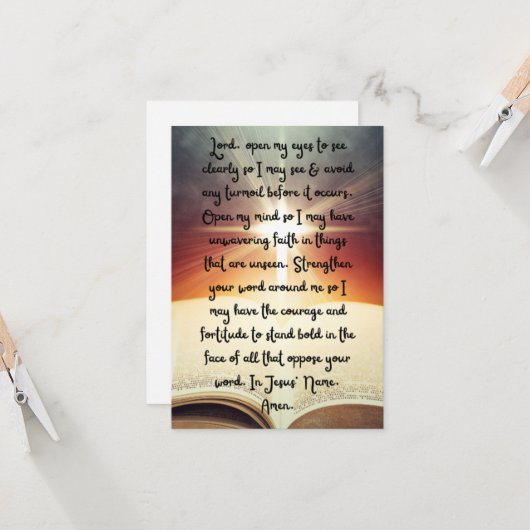 Lord, open my eyes to see
clearly so I may see & avoid
any turmoil before it occurs.
Open my mind so I may have
unwavering faith in things
that are unseen. Strengthen
your word around me so I
may have the courage and
fortitude to stand bold in the
face of all that oppose your
word. In Jesus' Name.
Amen.